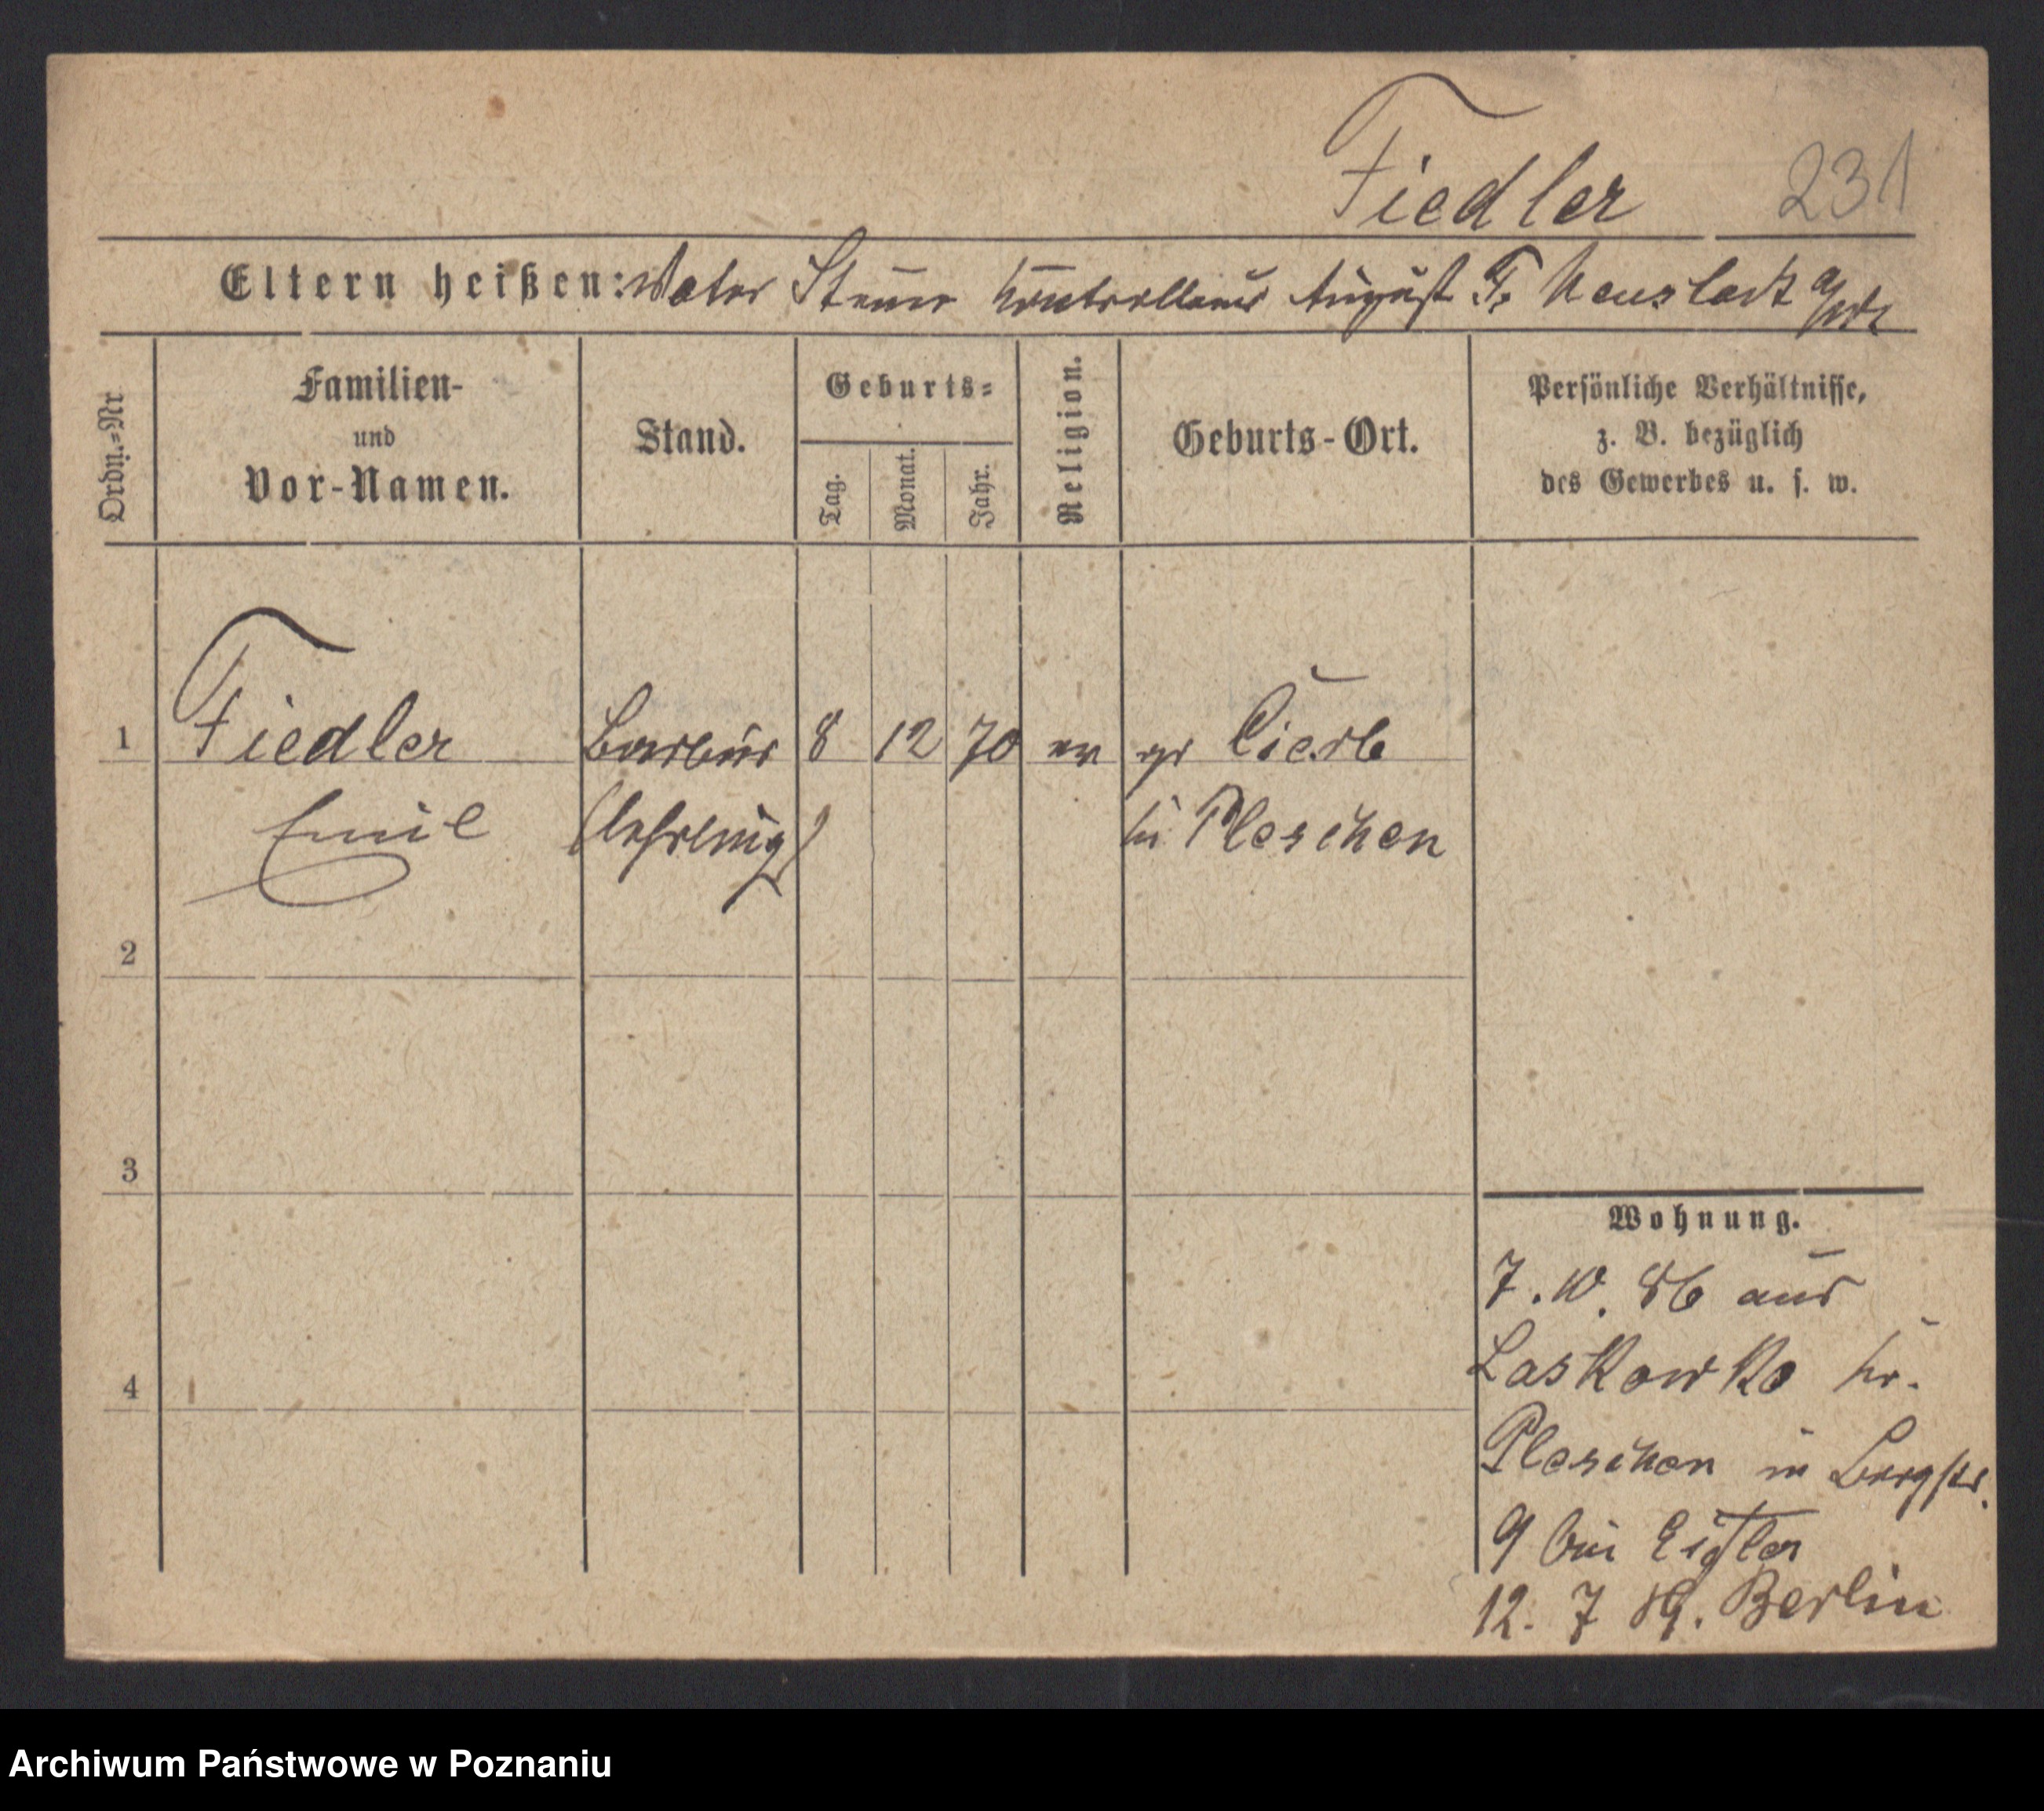 Fiedler 231
Eltern heißen: Vater Steuer Kontrolleur August F. Neustadt a/W
Ordn.-Nr
Familien-
und
Vor-Namen.
Stand.
Geburts-
Tag.
Monat.
Jahr.
Religion.
Geburts-Ort.
Persönliche Verhältnisse,
z. B. bezüglich
des Gewerbes u. s. w.
1 Fiedler Barbier 8 12 70 ev
Emil (lehrling) Pleschen
2
3
4
Wohnung.
7. 10. 86 aus
Laskowko kr.
Pleschen in Bergstr.
9 bei
12. 7 89. Berlin
Archiwum Państwowe w Poznaniu